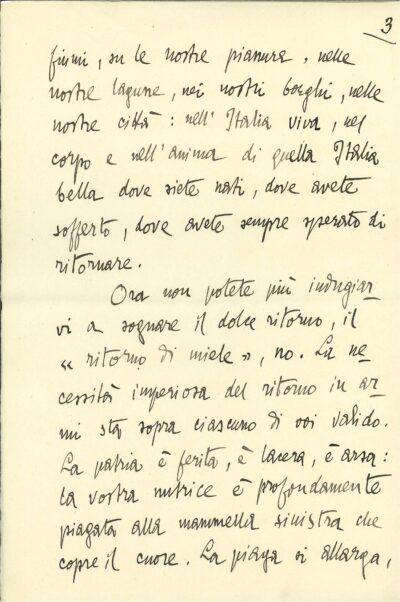 3
fiumi, su le nostre pianure, nelle
nostre lagune, nei nostri borghi, nelle
nostre città: nell'Italia viva, nel
corpo e nell'anima di quella Italia
bella dove siete nati, dove avete
sofferto, dove avete sempre sperato di
ritornare.
Ora non potete più indugiar-
vi a sognare il dolce ritorno, il
« ritorno di miele », no. La ne-
cessità imperiosa del ritorno in ar-
mi sta sopra ciascuno di voi valido.
La patria è ferita, è lacera, è arsa:
la vostra nutrice è profondamente
piagata alla mammella sinistra che
copre il cuore. La piaga si allarga,